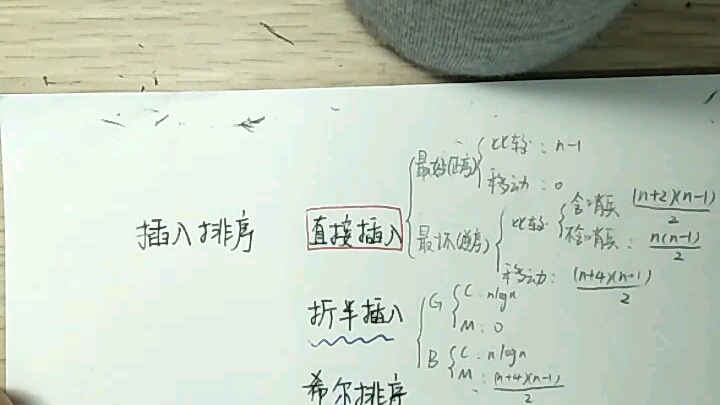 插入排序
直接插入
最好(正序)
比较: n-1
移动: 0
最坏(逆序)
比较
含哨兵 (n+2)(n-1)/2
不含哨兵: n(n-1)/2
移动: (n+4)(n-1)/2
折半插入
G
C: nlogn
M: 0
B
C: nlogn
M: (n+4)(n-1)/2
希尔排序